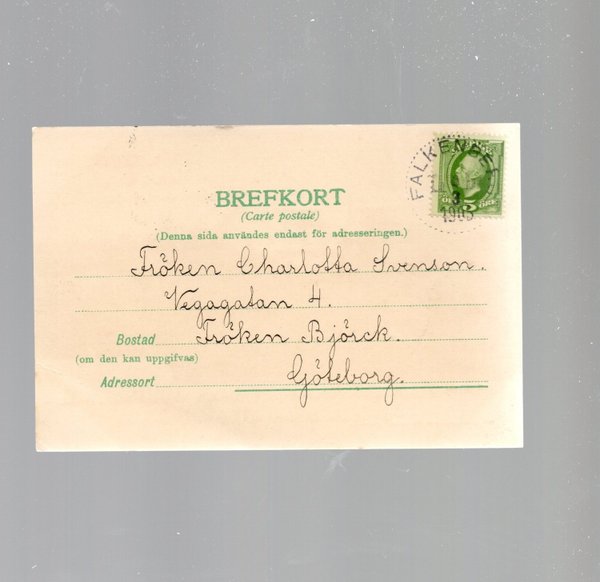 FALKENBERG
3
1903
5 ÖRE
BREFKORT
(Carte postale)
(Denna sida användes endast för adresseringen.)
Fröken Charlotta Svenson.
Vegagatan 4.
Bostad Fröken Björck.
(om den kan uppgifvas)
Adressort Göteborg.